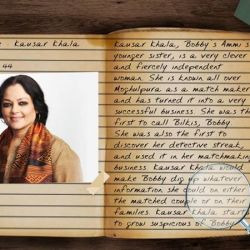 : Kausar Khala
44
Kausar Khala, Bobby's Ammi's
younger sister, is a very clever
and fiercely independent
woman. She is known all over
Moghulpura as a match maker
and has turned it into a very
successful business. She was the
first to call Bilkis, Bobby.
She was also the first to
discover her detective streak,
and used it in her matchmaking
business. Kausar Khala would
make Bobby dig up whatever
information she could on either
the matched couple or on their
families. Kausar Khala start
to grow suspicious of Bobby's